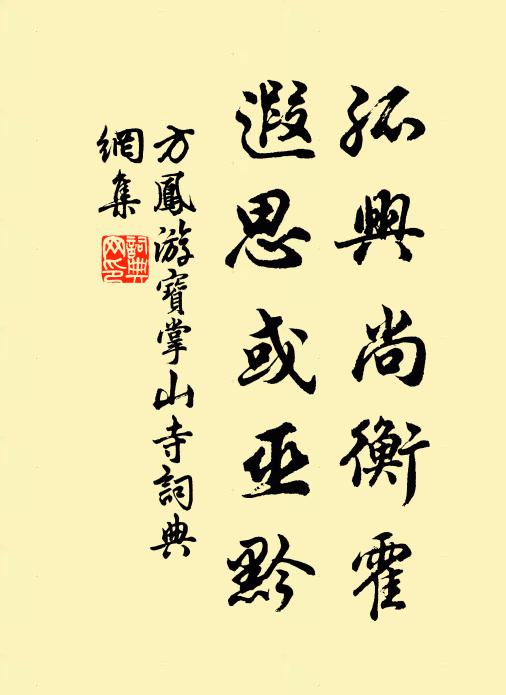 孤興尚衡霍
遐思或巫黔
方鳳游寶掌山寺詞典
網集
詞典
网印